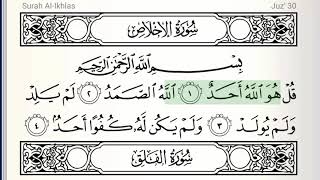 Surah Al-Ikhlas Juz' 30
سُورَةُ الإِخْلَاصِ
بِسْمِ اللَّهِ الرَّحْمَٰنِ الرَّحِيمِ
قُلْ هُوَ اللَّهُ أَحَدٌ ١ اللَّهُ الصَّمَدُ ٢ لَمْ يَلِدْ
وَلَمْ يُولَدْ ٣ وَلَمْ يَكُن لَّهُ كُفُوًا أَحَدٌ ٤
سُورَةُ الفَلَقِ